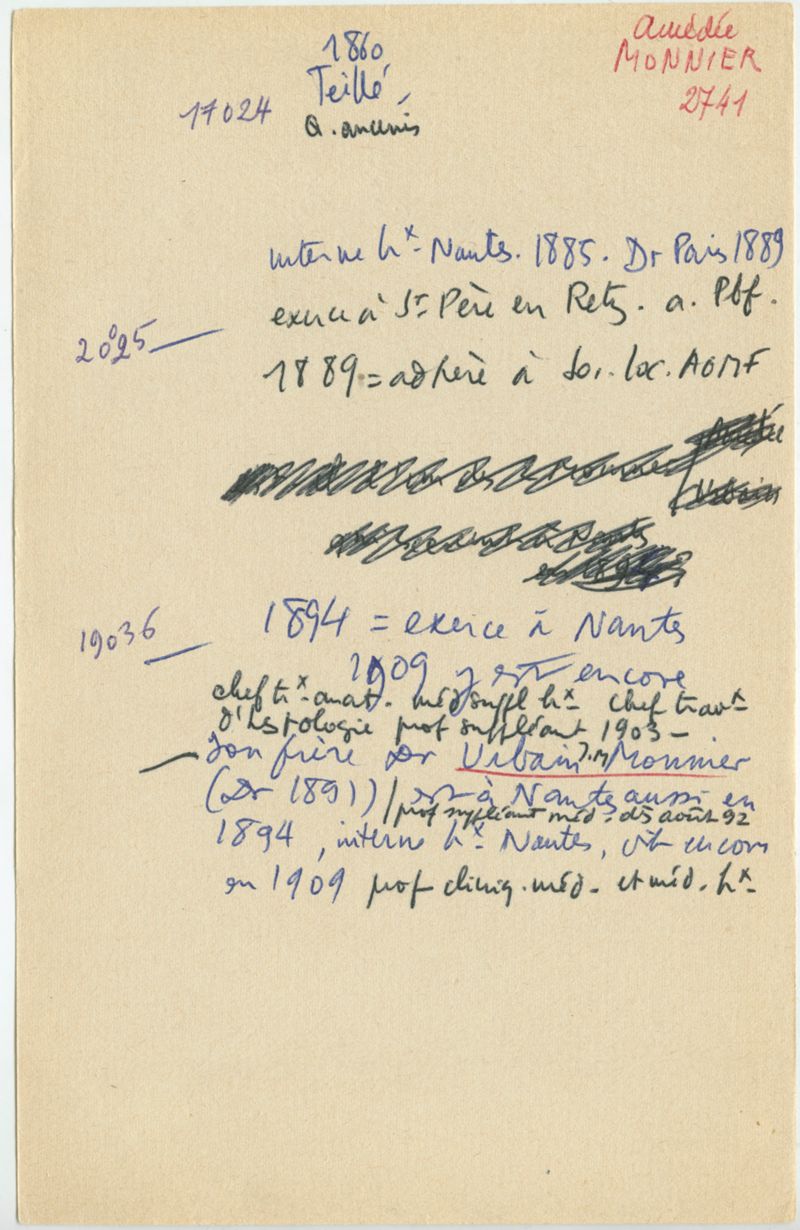 Amédée
MONNIER
2741
1860
Teillé,
17024
a. ancenis
interne hx. Nantes. 1885. Dr Paris 1889
exerce à St Père en Retz. a. Pbf.
2025
1889 = adhère à Soc. loc. AGMF
19036
1894 = exerce à Nantes
1909 y est encore
chef tx. anat. méd suppl hx chef travx
d'histologie prof suppléant 1903 -
son frère Dr Urbain J.M Monnier
(Dr 1891) est à Nantes aussi en
/ prof suppléant méd. d5 août 92
1894, interne hx. Nantes, vit encore
en 1909 prof cliniq. méd. et méd. hx.